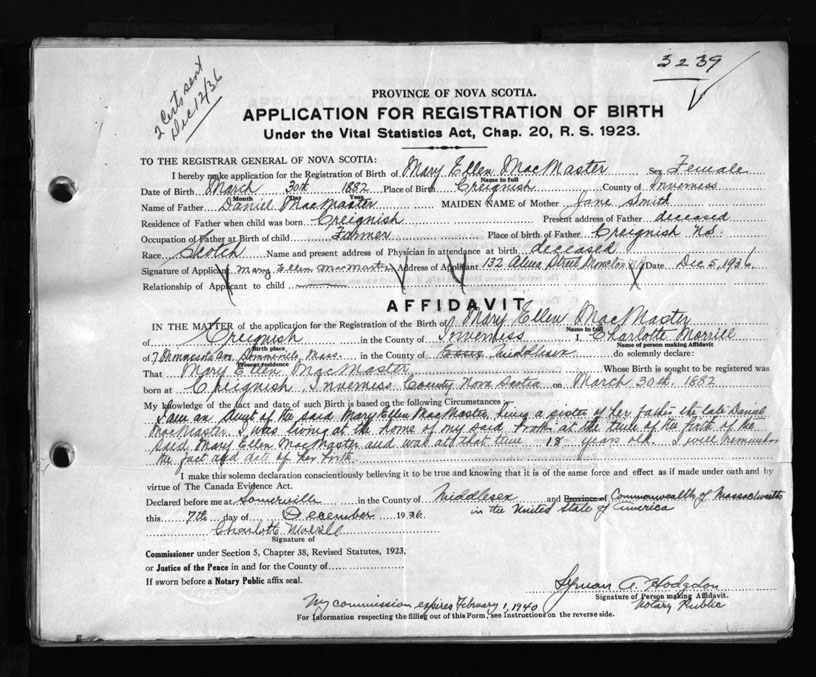 3239
2 Certs sent
Dec 12/36
PROVINCE OF NOVA SCOTIA.
APPLICATION FOR REGISTRATION OF BIRTH
Under the Vital Statistics Act, Chap. 20, R. S. 1923.
TO THE REGISTRAR GENERAL OF NOVA SCOTIA:
I hereby make application for the Registration of Birth of Mary Ellen MacMaster Sex Female
Name in full
Date of Birth March 30th 1882 Place of Birth Creignish County of Inverness
Month Year
Name of Father Daniel MacMaster MAIDEN NAME of Mother Jane Smith
Residence of Father when child was born Creignish Present address of Father deceased
Occupation of Father at Birth of child Farmer Place of birth of Father Creignish N.S.
Race Scotch Name and present address of Physician in attendance at birth deceased
Signature of Applicant Mary Ellen MacMaster Address of Applicant 132 Alma Street Moncton Date Dec 5, 1936
Relationship of Applicant to child
AFFIDAVIT
IN THE MATTER of the application for the Registration of the Birth of Mary Ellen MacMaster
Name in full
of Creignish in the County of Inverness I, Charlotte Morrill
Birth place Name of person making Affidavit
of 7 Minnesota Ave Somerville, Mass. in the County of Essex Middlesex do solemnly declare:
Present residence
That Mary Ellen MacMaster Whose Birth is sought to be registered was
born at Creignish, Inverness County Nova Scotia on March 30th, 1882
My knowledge of the fact and date of such Birth is based on the following Circumstances
I am an Aunt of the said Mary Ellen MacMaster, being a sister of her father the late Daniel
MacMaster. I was living at the home of my said brother at the time of the birth of the
said Mary Ellen MacMaster and was at that time 18 years old. I well remember
the fact and date of her birth.
I make this solemn declaration conscientiously believing it to be true and knowing that it is of the same force and effect as if made under oath and by
virtue of The Canada Evidence Act.
Declared before me at Somerville in the County of Middlesex and Province of Commonwealth of Massachusetts
in the United State of America
this 7th day of December 1936
Charlotte Morrill
Signature of
Commissioner under Section 5, Chapter 38, Revised Statutes, 1923,
or Justice of the Peace in and for the County of
If sworn before a Notary Public affix seal.
Lyman A. Hodgdon
Signature of Person making Affidavit.
Notary Public
My commission expires February 1, 1940
For Information respecting the filling out of this Form, see Instructions on the reverse side.